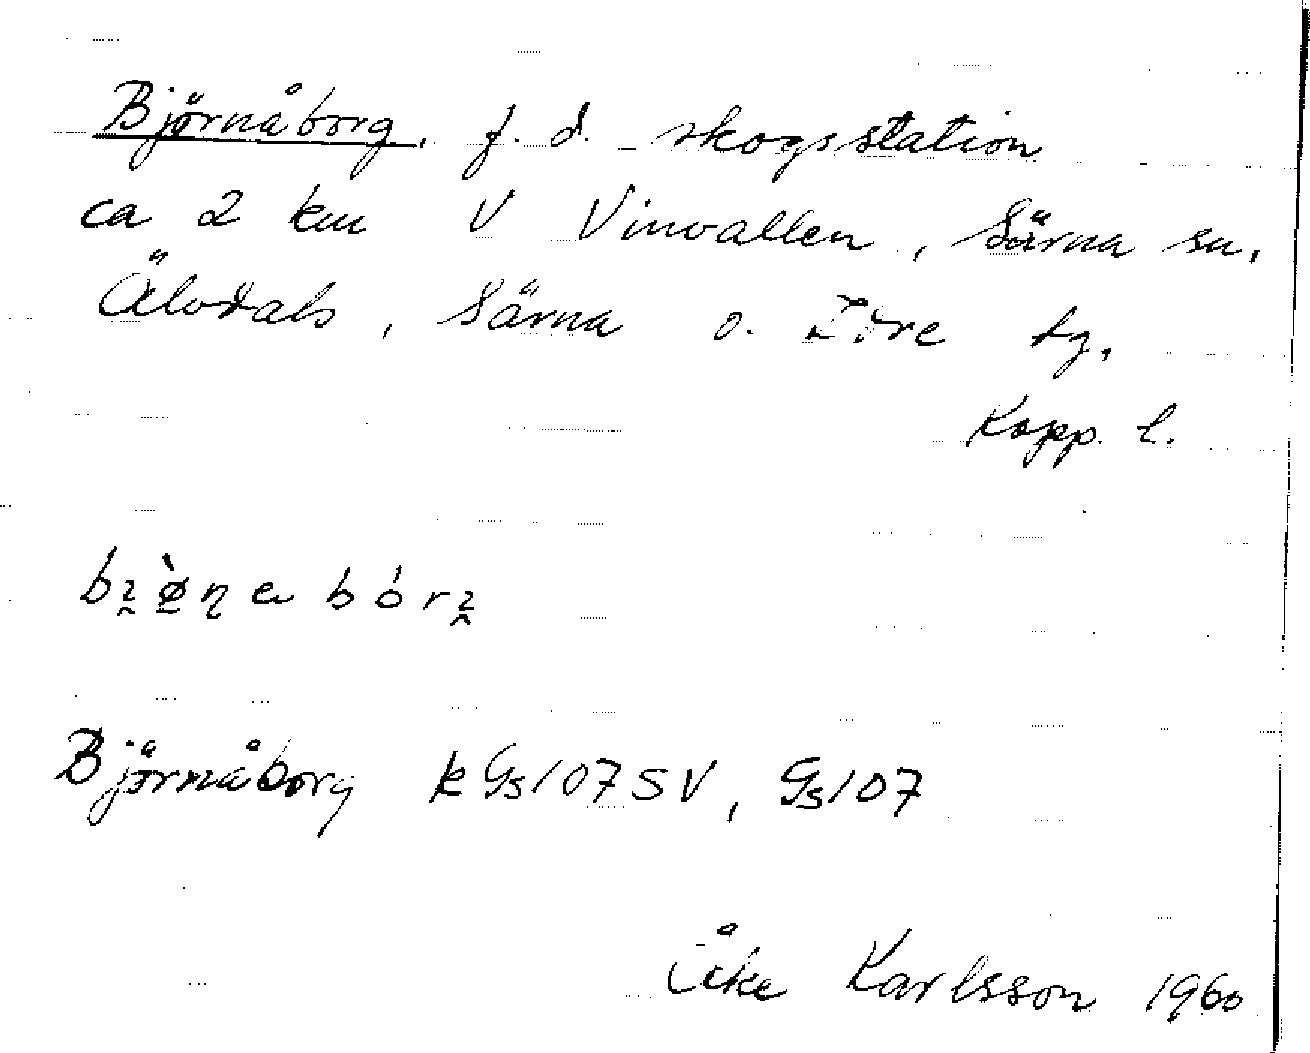 Björnåborg, f.d. skogsstation
ca 2 km V Vinvallen, Särna sn,
Älvdals, Särna o. Idre tg,
Kopp. l.
Björnåborg k Gs107SV, Gs107
Åke Karlsson 1960